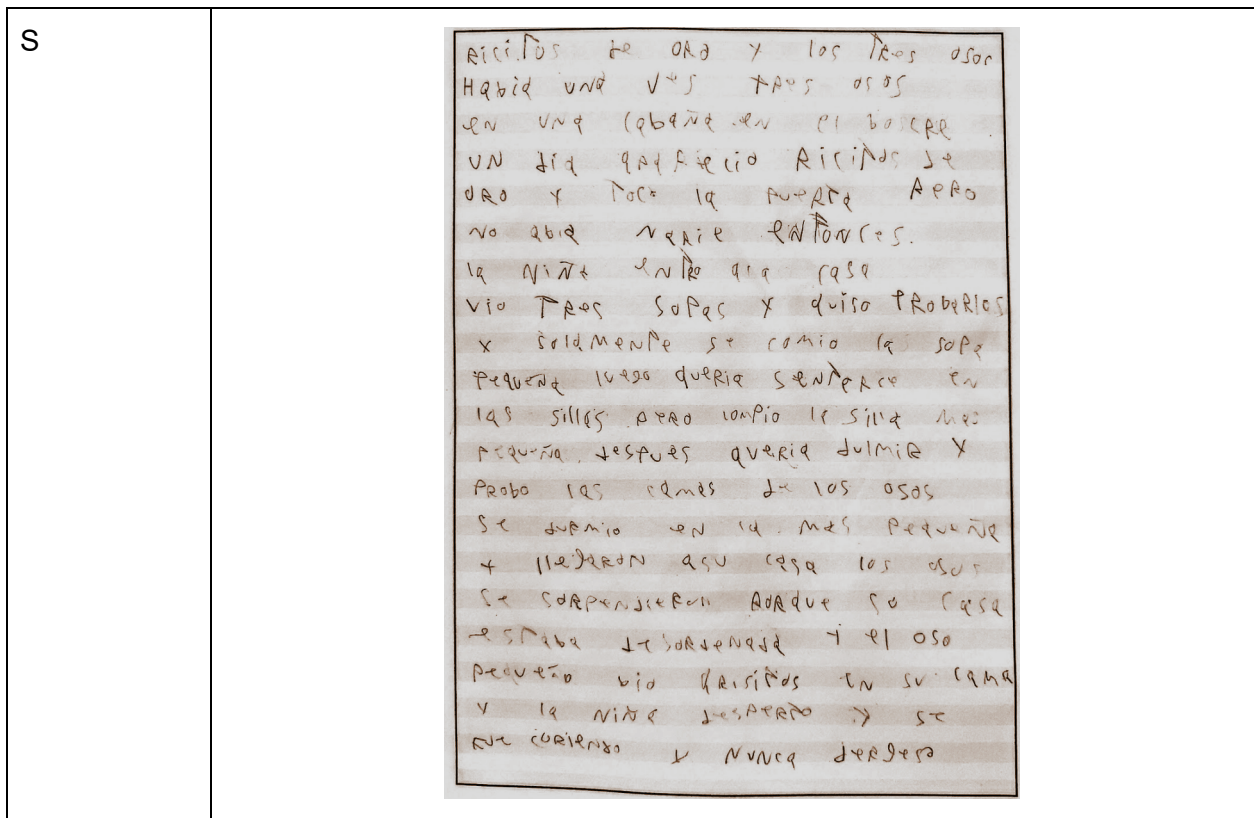 S
Ricitos de oro y los tres osos
Habia una ves tres osos
en una cabaña en el boscqe
un dia aparecio Ricitos de
oro y toco la puerta pero
no abia narie entonces.
la niña entro ala casa
vio tres sopas y quiso probarlos
y solamente se comio las sopa
pequeña luego queria sentarce en
las sillas pero rompio la silla mas
pequeña. despues queria dulmir y
probo las camas de los osos
se durmio en la mas pequeña
y llegaron asu casa los osos
se sorpendieron porque so casa
estaba desordenada y el oso
pequeño vio a risitos en su cama
y la niña desperto y se
fue coriendo y nunca